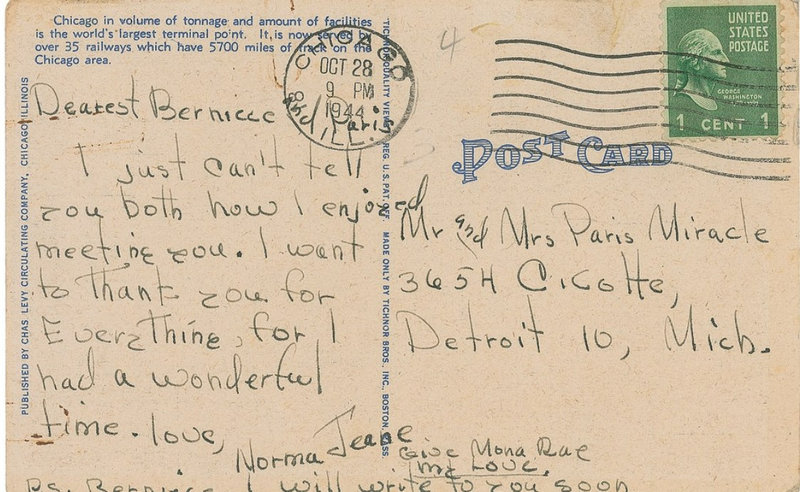 Chicago in volume of tonnage and amount of facilities
is the world's largest terminal point. It is now served by
over 35 railways which have 5700 miles of track on the
Chicago area.
PUBLISHED BY CHAS. LEVY CIRCULATING COMPANY, CHICAGO, ILLINOIS
Dearest Berniece
and Paris
I just can't tell
you both how I enjoyed
meeting you. I want
to thank you for
Everything, for I
had a wonderful
time. love,
Norma Jeane
P.s. Berniece I will write to you soon
Give Mona Rae
my Love.
TICHNOR QUALITY VIEWS REG. U.S. PAT. OFF. MADE ONLY BY TICHNOR BROS. INC. BOSTON, MASS.
CHICAGO
OCT 28
9 PM
1944
ILL.
4
UNITED
STATES
POSTAGE
GEORGE WASHINGTON
1 CENT 1
POST CARD
Mr and Mrs Paris Miracle
3654 Cicotte,
Detroit 10, Mich.